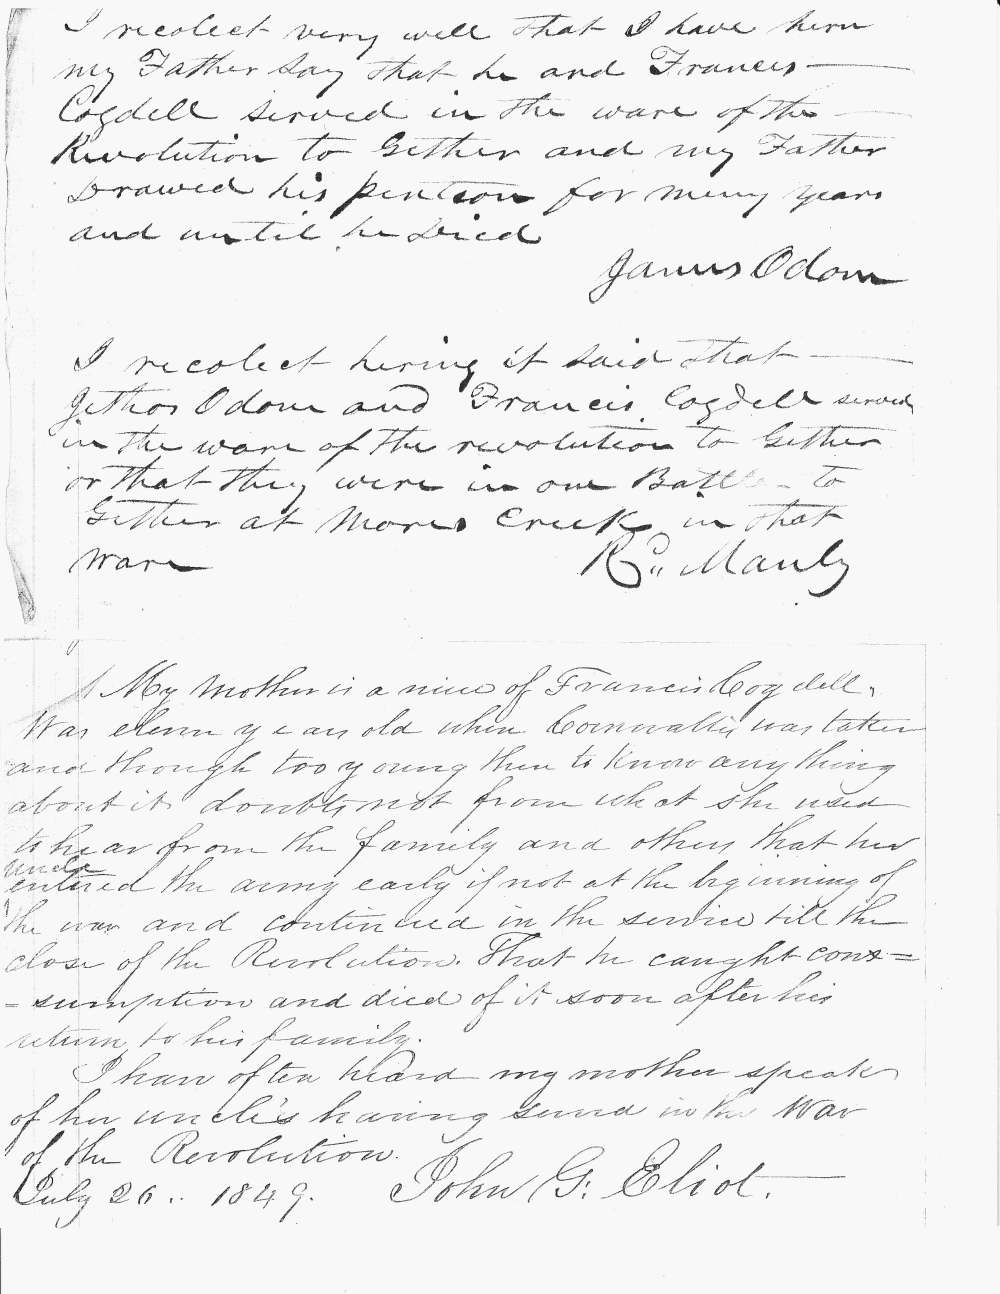 I recolect very well that I have hern
my Father say that he and Francis
Cogdell served in the ware of the
Revolution to Gether and my Father
Drawed his pention for meny years
and until he Died
James Odom
I recolect hering it said that
Jethor Odom and Francis Cogdell served
in the ware of the revolution to Gether
or that they were in one Battle to
Gether at Mores Creek in that
ware
Rd. Manly
My Mother is a niece of Francis Cogdell,
Was eleven years old when Cornwallis was taken
and though too young then to know any thing
about it doubts not from what she used
to hear from the family and others that her
uncle
entered the army early if not at the beginning of
the war and continued in the service till the
close of the Revolution. That he caught con=
=sumption and died of it soon after his
return to his family.
I have often heard my mother speak
of her uncle's having served in the War
of the Revolution.
July 26.. 1849. John G: Eliot.